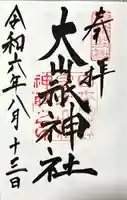 奉拝
大山祇神社
令和六年八月十三日